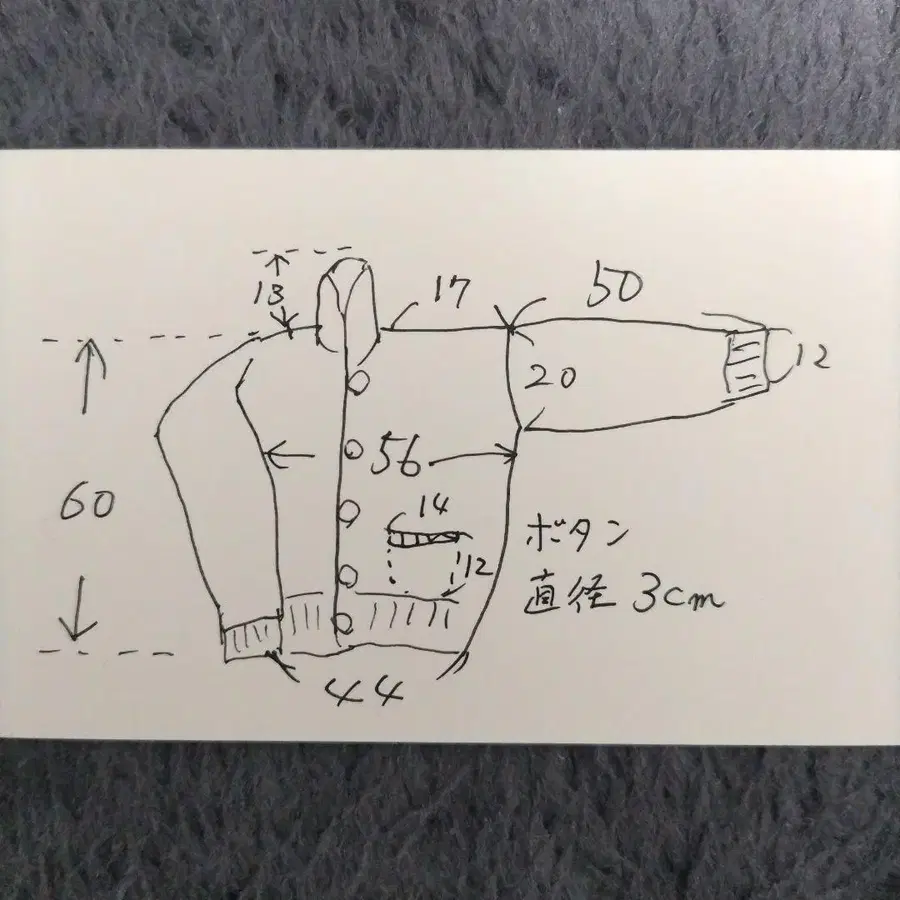 17
50
13
20
12
56
60
14
12
ボタン
直径 3cm
44